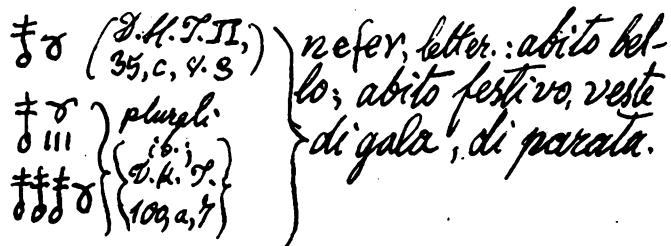 𓄤 (D.H.I.II,
35, c,
𓄤 III plurali
ib.;
𓄤𓄤𓄤 D.H.I.
100, a, 7
nefer, letter.: abito bel-
lo; abito festivo, veste
di gala, di parata.